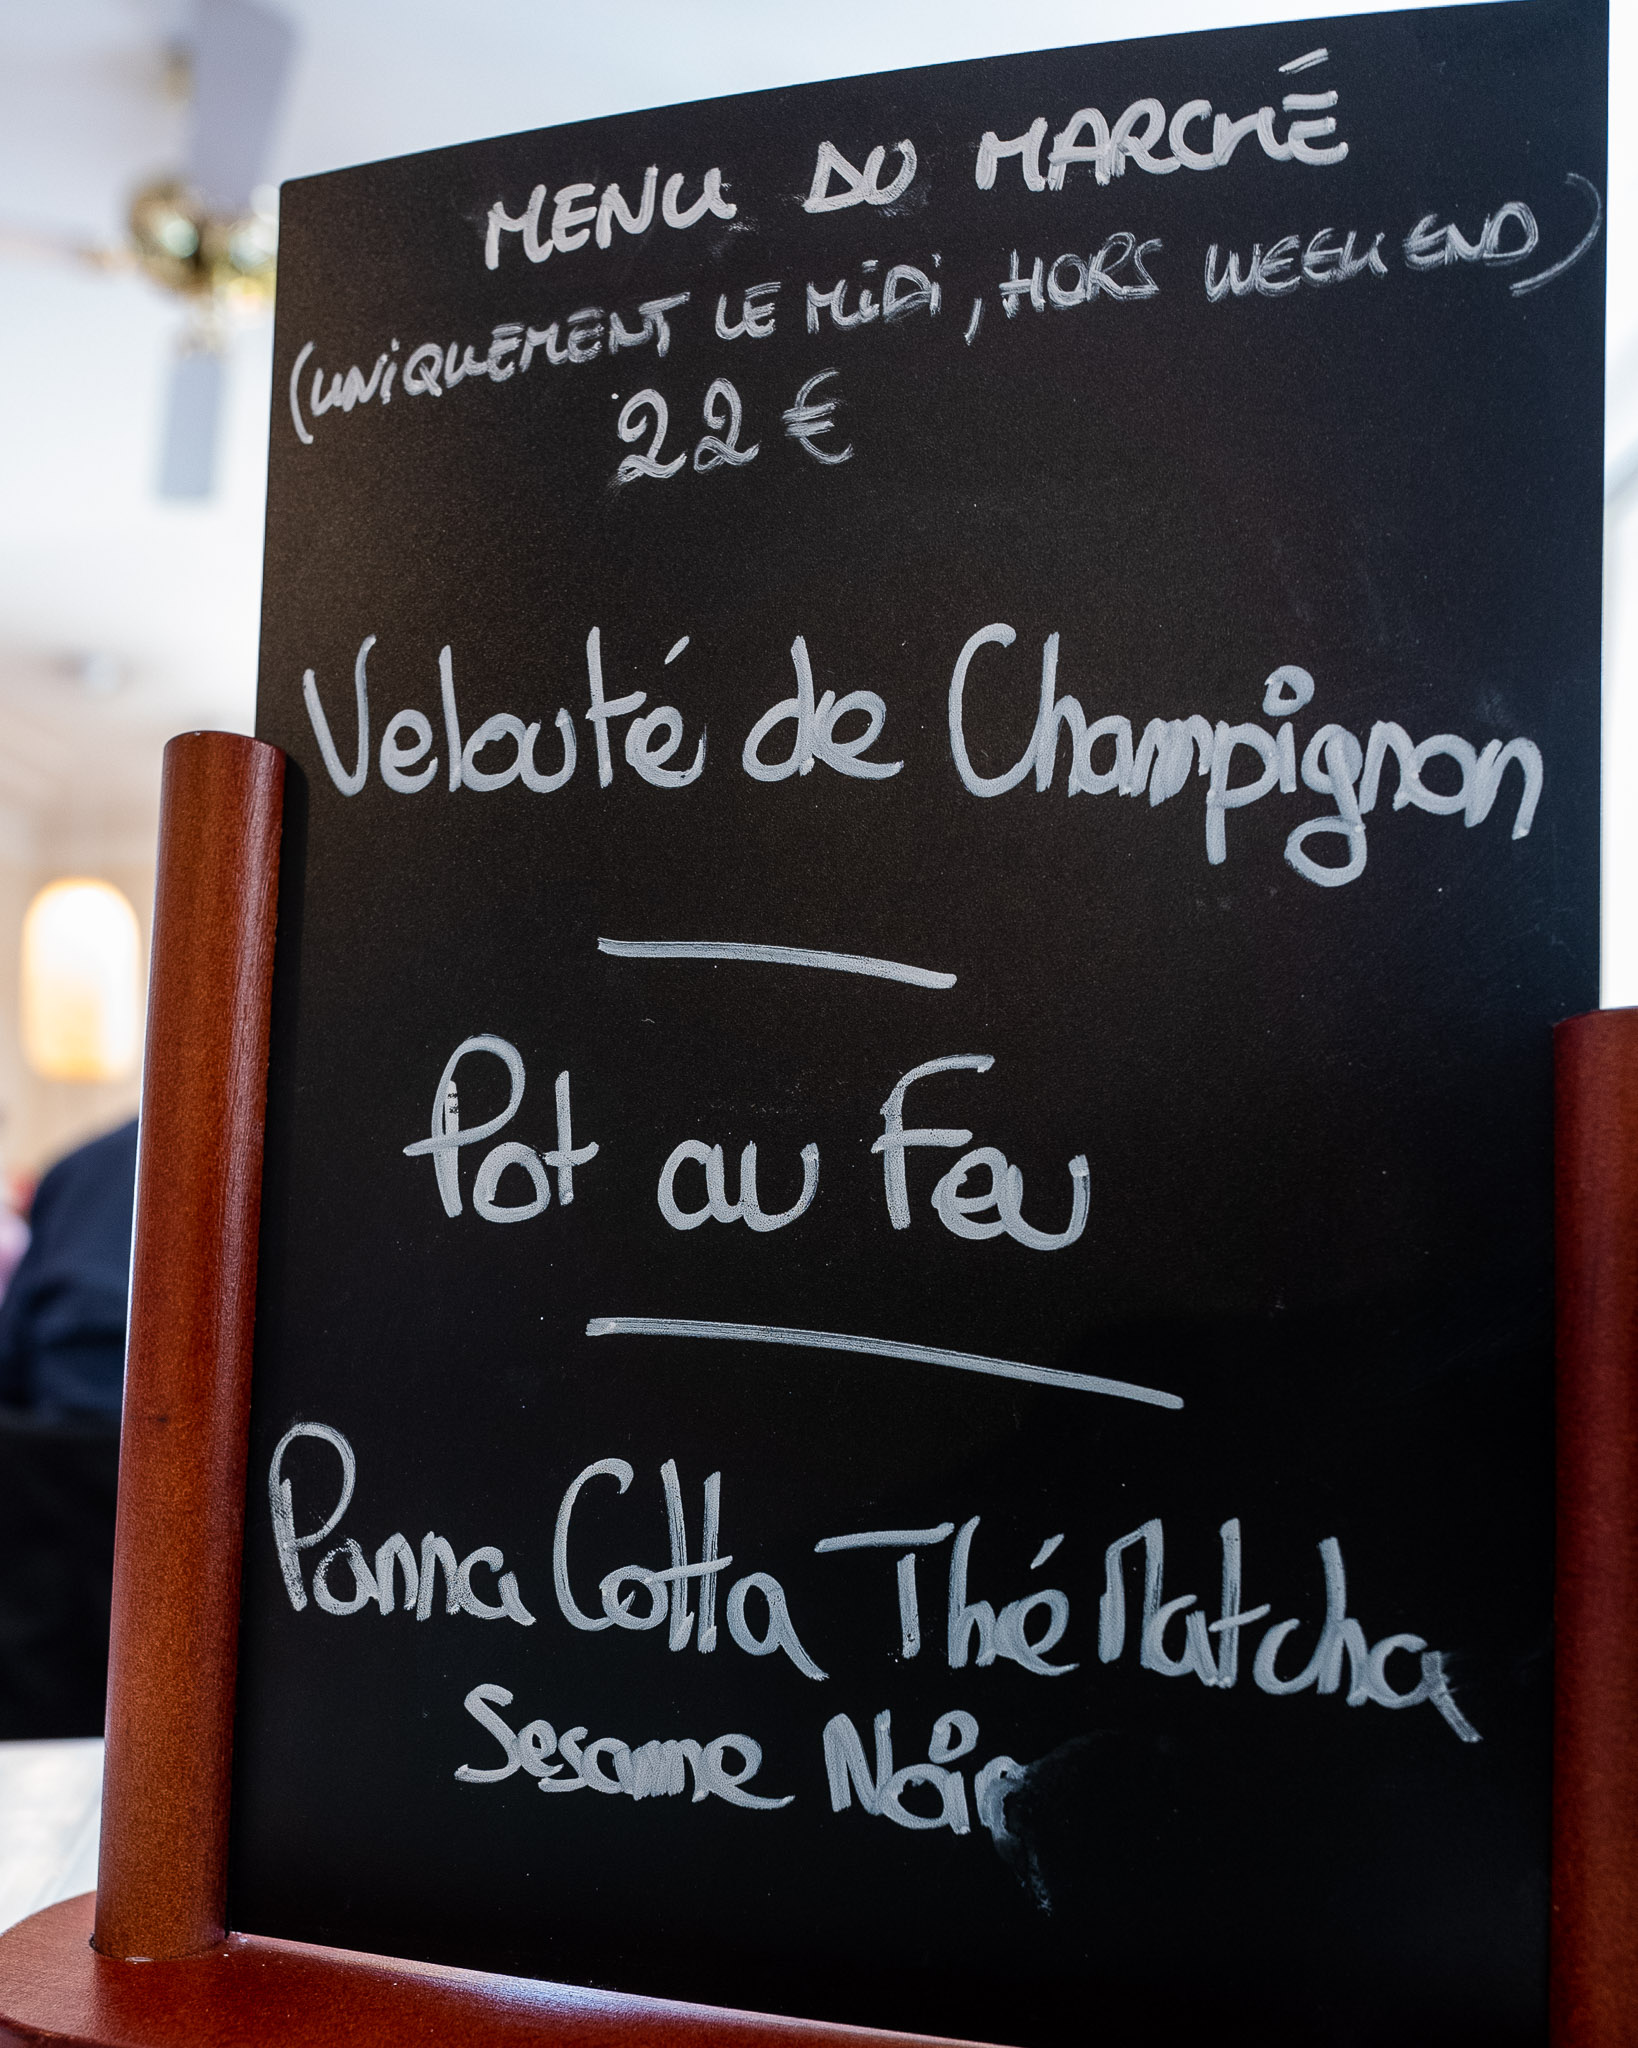 MENU DU MARCHÉ
(UNIQUEMENT LE MIDI, HORS WEEK END)
22 €
Velouté de Champignon
Pot au Feu
Panna Cotta Thé Matcha
Sesame Noir